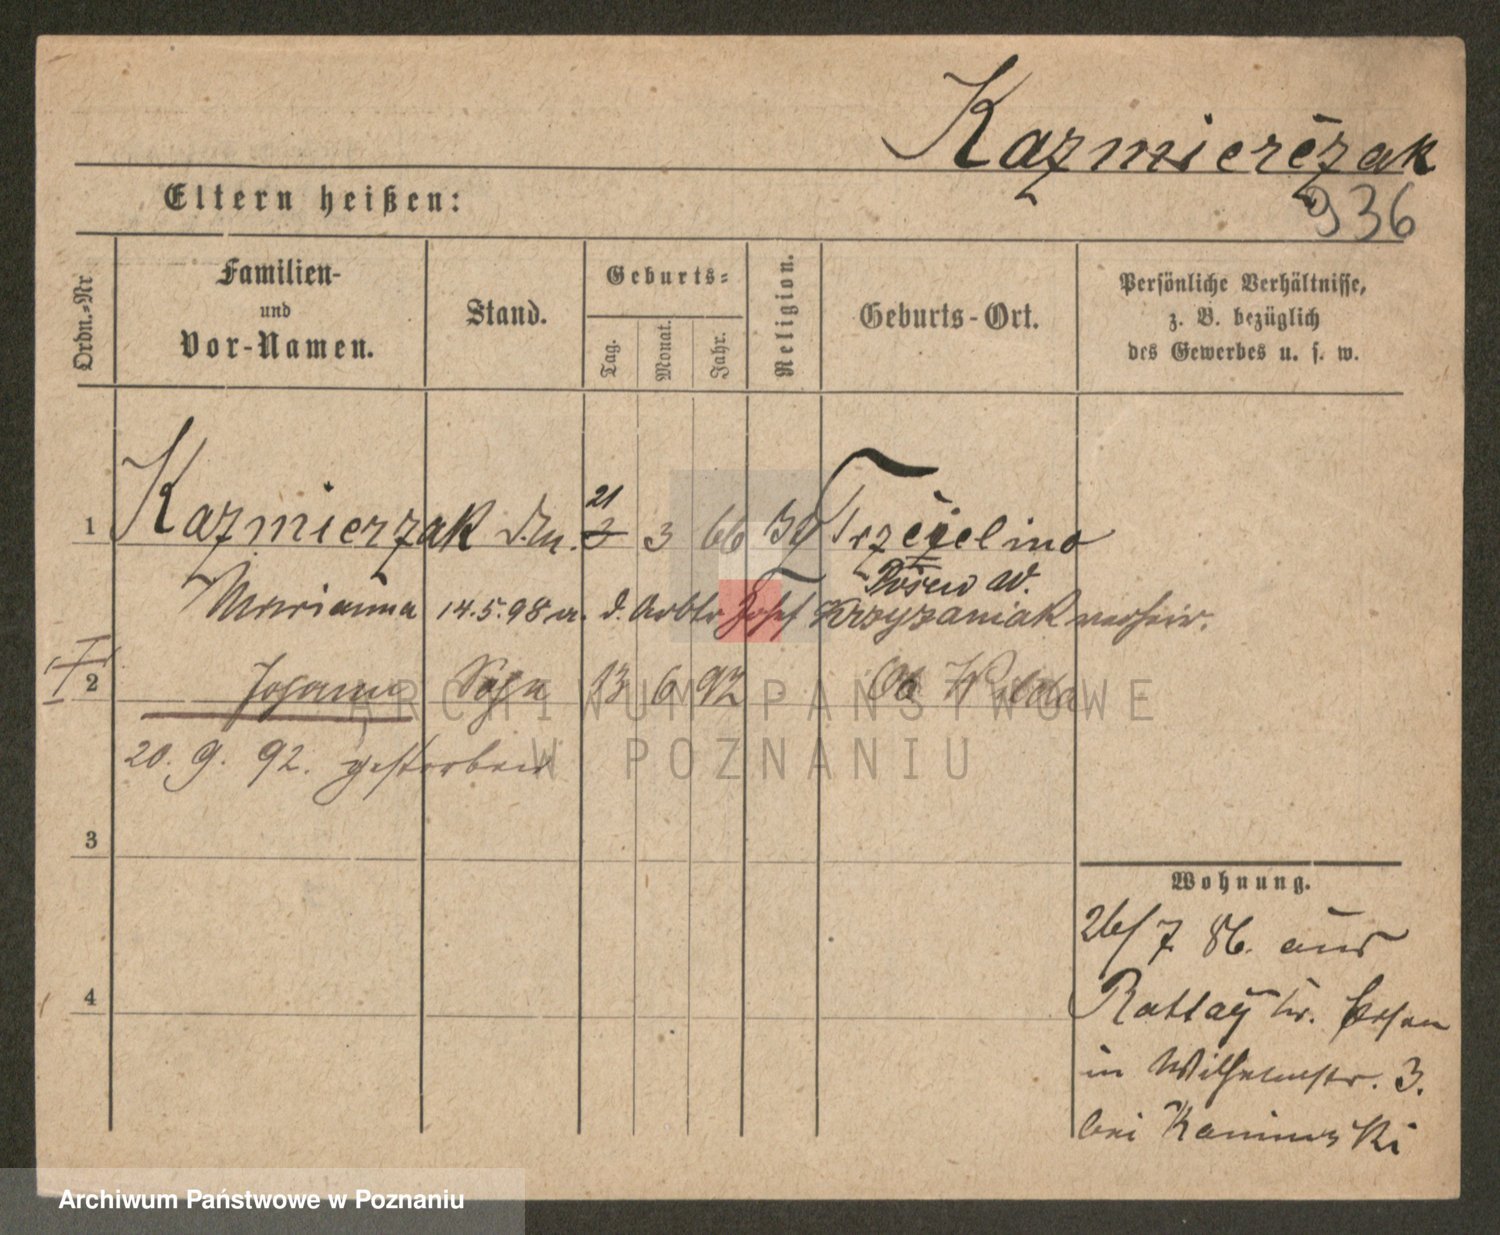 Kazmierczak
936
Eltern heißen:
Ordn.-Nr
Familien-
und
Vor-Namen.
Stand.
Geburts-
Tag.
Monat.
Jahr.
Religion.
Geburts-Ort.
Persönliche Verhältnisse,
z. B. bezüglich
des Gewerbes u. s. w.
21
1 Kazmierzak 3 3 66 Trzcielino
Posen W.
Marianna 14.5.98 d. Arbtr Josef Krzyzaniak verheir.
2 Johann Sohn 13 6 92 Ob Wilda
20. 9. 92. gestorben
3
4
Wohnung.
26/7 86. aus
Rattay Kr. Posen
in Wilhelmstr. 3.
bei Kaminski
ARCHIWUM PAŃSTWOWE
W POZNANIU
Archiwum Państwowe w Poznaniu